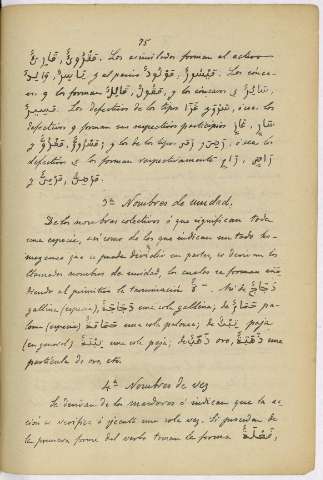 75
مَقْرُوءٌ, قَارِئٌ. Los asimilados forman el activo
مَيْسُورٌ, مَوْلُودٌ y el pasivo يَاسِرٌ, وَالِدٌ. Los cónca-
vos و forman مَقُولٌ, قَائِلٌ, y los cóncavos ي
سَائِرٌ, مَسِيرٌ. Los defectivos de los tipos غَزَا, سَرُوَ ó sea los
defectivos و forman sus respectivos participios غَازٍ,
سَارٍ, y los de los tipos رَمَى, رَضِيَ ó sea los
defectivos ي los forman respectivamente رَامٍ, رَاضٍ,
مَرْمِيٌّ, مَرْضِيٌّ.
3ª Nombres de unidad.
De los nombres colectivos ó que significan toda
una especie, así como de los que indican un todo ho-
mogéneo que se puede dividir en partes, se derivan los
llamados nombres de unidad, los cuales se forman aña-
diendo al primitivo la terminación ةٌ. Así de دَجَاجٌ
gallina (especie), دَجَاجَةٌ una sola gallina; de حَمَامٌ pa-
loma (especie) حَمَامَةٌ una sola paloma; de تِبْنٌ paja
(en general) تِبْنَةٌ una sola paja; de ذَهَبٌ oro, ذَهَبَةٌ una
partícula de oro, etc.
4ª Nombres de vez
Se derivan de los masdares é indican que la ac-
ción se verifica ó ejecuta una sola vez. Si proceden de
la primera forma del verbo toman la forma فَعْلَةٌ,